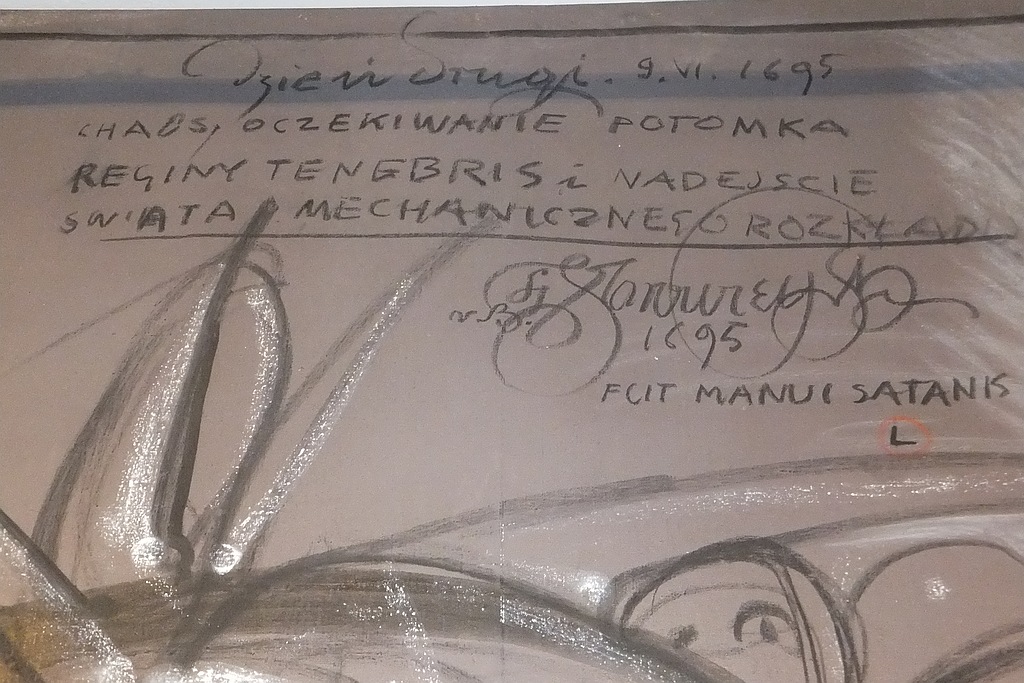 Dzień Drugi. 9.VI.1695
CHAOS, OCZEKIWANIE POTOMKA
REGINY TENEBRIS i NADEJSCIE
SWIATA MECHANICZNEGO ROZKŁADU
v. B.
1695
FCIT MANUS SATANIS
L